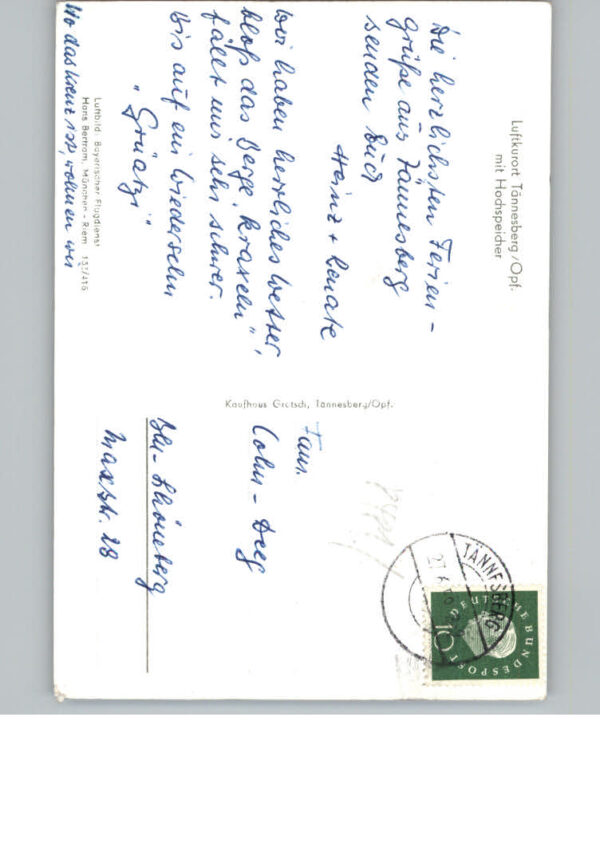 Luftkurort Tännesberg/Opf.
mit Hochspeicher
Die herzlichsten Ferien-
grüße aus Tännesberg
senden Euch
Heinz + Renate
Wir haben herrliches Wetter,
bloß das Berge "kraxeln"
fällt uns sehr schwer.
Bis auf ein Wiedersehn
"Grüatzi"
Luftbild: Bayerischer Flugdienst
Hans Bertram, München - Riem 157/416
Wo das Kreuz ist, wohnen wir
Kaufhaus Gretsch, Tännesberg/Opf.
Fam.
Cohn - Deeg
Bln-Schöneberg
Maxstr. 28
TÄNNESBERG
DEUTSCHE BUNDESPOST
10